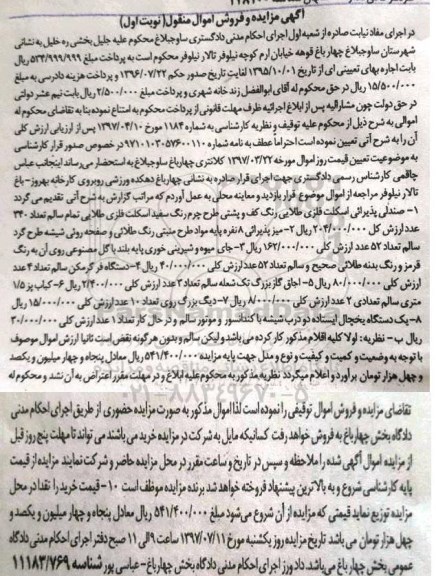 آگهی مزایده و فروش اموال منقول( نوبت اول)
در اجرای مفاد نیابت صادره از شعبه اول اجرای احکام مدنی دادگستری ساوجبلاغ محکوم علیه جلیل بخشی ره خلیل به نشانی
شهرستان ساوجبلاغ چهارباغ قوهه خیابان ارم کوچه نیلوفر تالار نیلوفر محکوم است به پرداخت مبلغ ۵۳۴/۹۹۹/۹۹۹ ریال
بابت اجاره بهای تعیینی ای از تاریخ ۱۳۹۵/۱۰/۰۱ لغایت تاریخ صدور حکم ۱۳۹۶/۰۷/۲۲ و پرداخت هزینه دادرسی به مبلغ
۱۵/۵۰۰/۰۰۰ ریال در حق محکوم له آقای ابوالفضل زند خانه شهری و پرداخت مبلغ ۲/۵۰۰/۰۰۰ ریال بابت نیم عشر دولتی
در حق دولت چون مشارالیه پس از ابلاغ اجرائیه ظرف مهلت قانونی از پرداخت محکوم به امتناع نموده بنا به تقاضای محکوم له
اموالی به شرح ذیل از محکوم علیه توقیف و نظریه کارشناسی به شماره ۱۱۸۴ مورخ ۱۳۹۷/۰۴/۱۰ پس از ارزیابی ارزش کلی
آن را به شرح آتی تعیین نموده است احتراما عطف به نامه شماره ۹۷۱۰۱۰۲۰۵۷۶۰۰۱۱۰ در خصوص صدور قرار کارشناسی
به موضوعیت تعیین قیمت روز اموال مورخه ۱۳۹۷/۰۳/۲۲ کلانتری چهارباغ ساوجبلاغ به استحضار می‌رساند اینجانب عباس
چاقمی کارشناس رسمی دادگستری جهت اجرای قرار صادره به نشانی چهارباغ دهکده ورزشی روبروی کارخانه بهروز - باغ
تالار نیلوفر مراجعه از اموال موضوع قرار بازدید و معاینه محلی به عمل آوردم که مراتب گزارش به شرح آتی تقدیم می گردد
۱- صندلی پذیرائی اسکلت فلزی طلایی رنگ کف و پشتی طرح چرم رنگ سفید اسکلت فلزی طلایی تمام سالم تعداد ۳۴۰
عدد ارزش کل ۲۰۴/۰۰۰/۰۰۰ ریال ۲- میز پذیرائی ۸ نفره پایه مواد طرح منبتی رنگ طلائی و صفحه رویی شیشه طرح گرد
سالم تعداد ۵۲ عدد ارزش کلی ۱۶۲/۰۰۰/۰۰۰ ریال ۳- جای میوه و شیرینی خوری پایه بلند با گل مصنوعی روی آن به رنگ
قرمز و رنگ بدنه طلائی صحیح و سالم تعداد ۵۲ عدد ارزش کلی ۴۰/۰۰۰/۰۰۰ ریال ۴- دستگاه فر گرمکن سالم تعداد ۴ عدد
ارزش کلی ۸۰/۰۰۰/۰۰۰ ریال ۵- اجاق گاز بزرگ تک شعله سالم تعداد ۳ عدد ارزش کلی ۲/۴۰۰/۰۰۰ ریال ۶- کباب پز ۱/۵
متری سالم تعداد ی ۲ عدد ارزش کلی ۸/۰۰۰/۰۰۰ ریال ۷- دیگ بزرگ روی تعداد ۱۰ عدد ارزش کلی ۱۵/۰۰۰/۰۰۰ ریال
۸- یک دستگاه یخچال ایستاده دو درب شیشه با کندانسور و موتور سالم و در حال کار تعداد ۱ عدد ارزش کلی ۳۰/۰۰۰/۰۰۰
ریال ب- نظریه: اولا کلیه اقلام مذکور کار کرده می باشد ولیکن سالم و بدون هرگونه نقص است ثانیا ارزش اموال موصوف
با توجه به وضعیت و کمیت و کیفیت و نوع و مدل جهت پایه مزایده ۵۴۱/۴۰۰/۰۰۰ ریال معادل پنجاه و چهار میلیون و یکصد
و چهل هزار تومان برآورد و اعلام میگردد نظریه مذکور به محکوم علیه ابلاغ و در مهلت مقرر اعتراض به آن نشد و محکوم له
تقاضای مزایده و فروش اموال توقیفی را نموده است لذا اموال مذکور به صورت مزایده حضوری از طریق اجرای احکام مدنی
دادگاه بخش چهارباغ به فروش خواهد رفت کسانیکه مایل به شرکت در مزایده خرید می باشند می تواند تا مهلت پنج روز قبل
از مزایده اموال آگهی شده را ملاحظه و سپس در تاریخ و ساعت مقرر در محل مزایده حاضر و شرکت نمایند مزایده از قیمت
پایه کارشناسی شروع و به بالاترین پیشنهاد فروخته خواهد شد برنده مزایده موظف است ۱۰- قیمت خرید را نقدا در محل
مزایده توزیع نماید قیمتی که مزایده از آن شروع می‌شود مبلغ ۵۴۱/۴۰۰/۰۰۰ ریال معادل پنجاه و چهار میلیون و یکصد و
چهل هزار تومان می باشد تاریخ مزایده روز یکشنبه مورخ ۱۳۹۷/۰۷/۱۱ ساعت ۹ الی ۱۱ صبح دفتر اجرای احکام مدنی دادگاه
عمومی بخش چهارباغ می‌باشد. دادورز اجرای احکام مدنی دادگاه بخش چهارباغ- عباسی پور شناسه ۱۱۱۸۳/۷۶۹